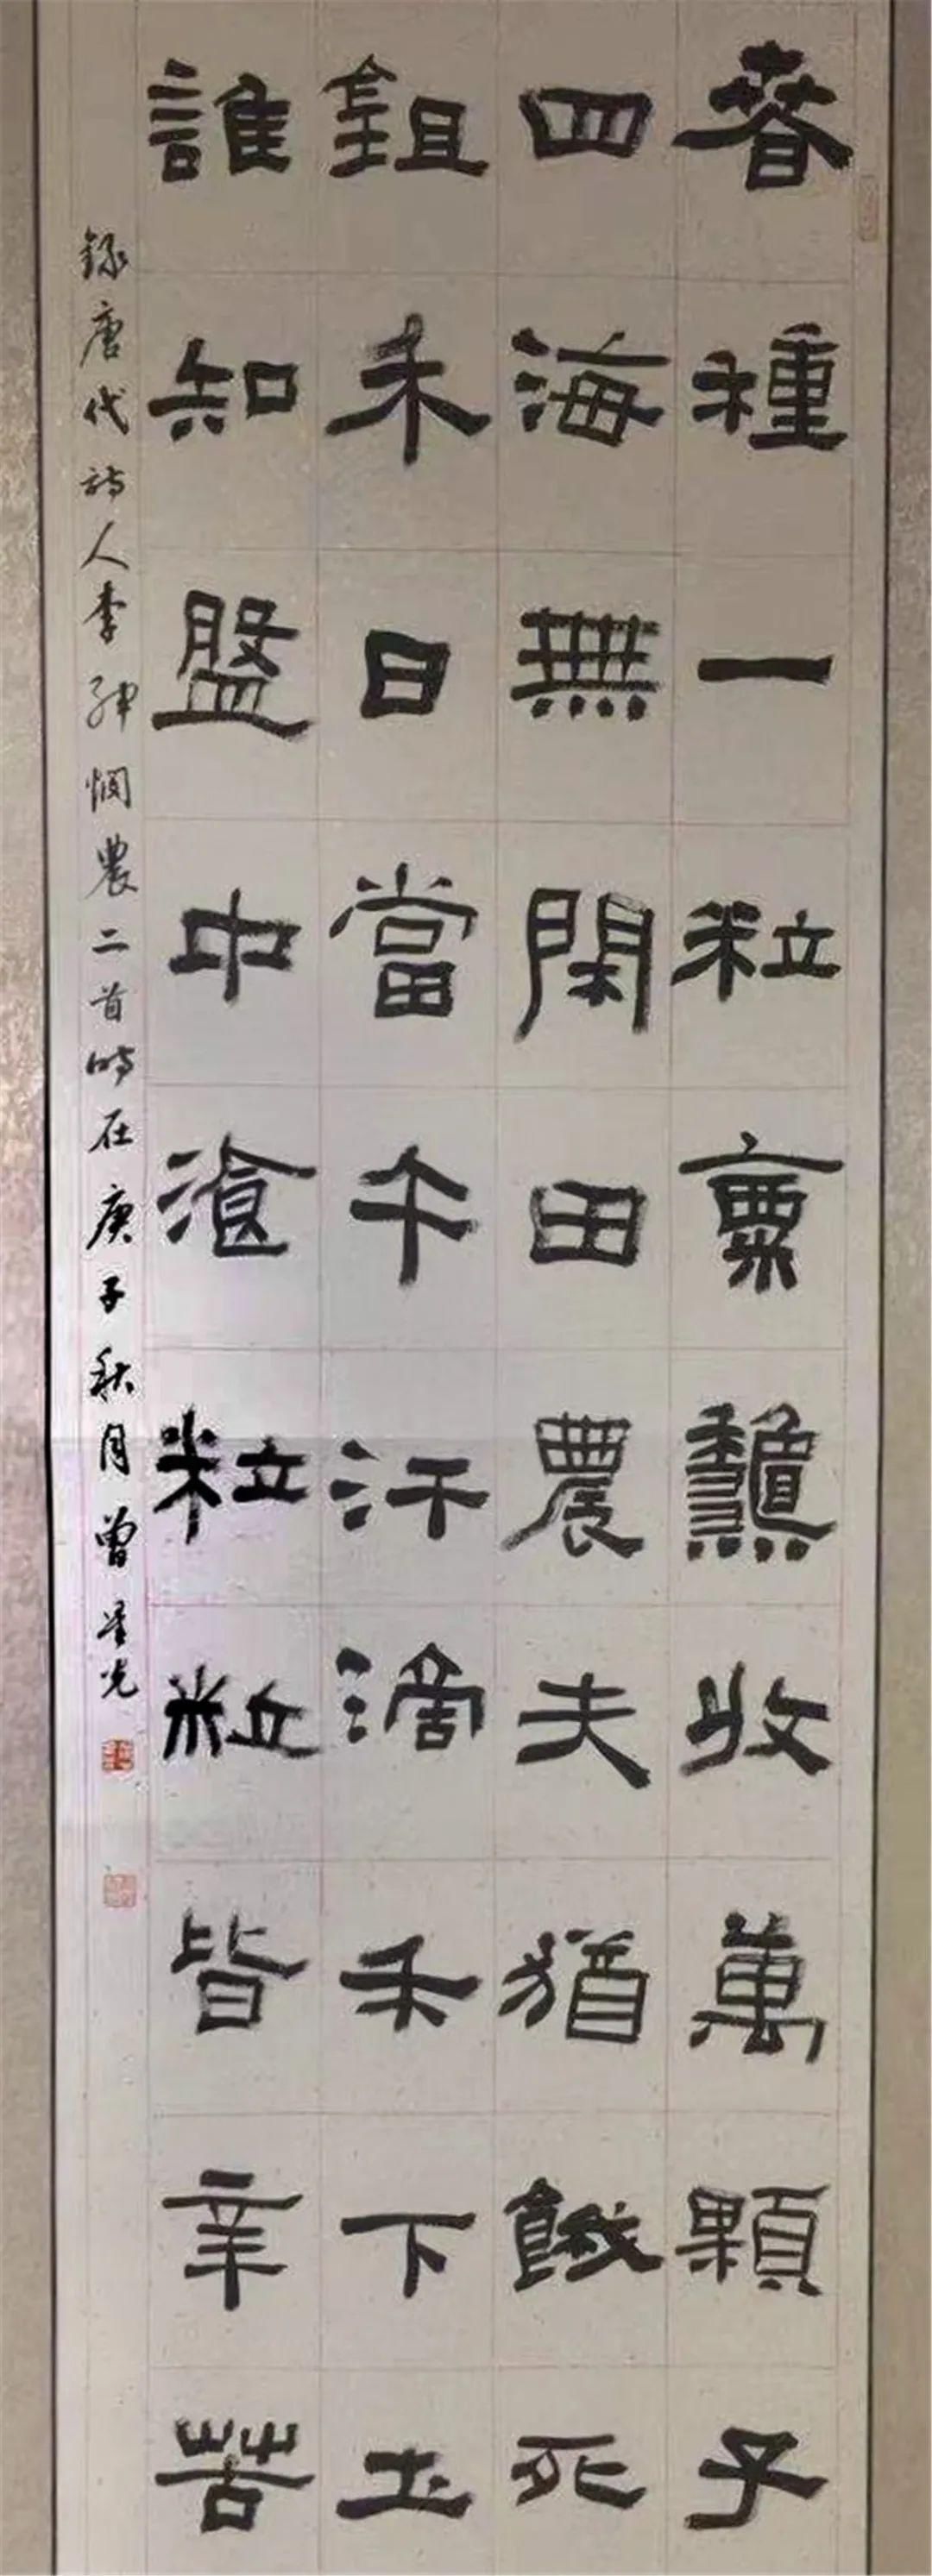 春種一粒粟龝收萬顆子
四海無閑田農夫猶餓死
鉏禾日當午汗滴禾下土
誰知盤中湌粒粒皆辛苦
錄唐代詩人李紳憫農二首時在庚子秋月曾星光